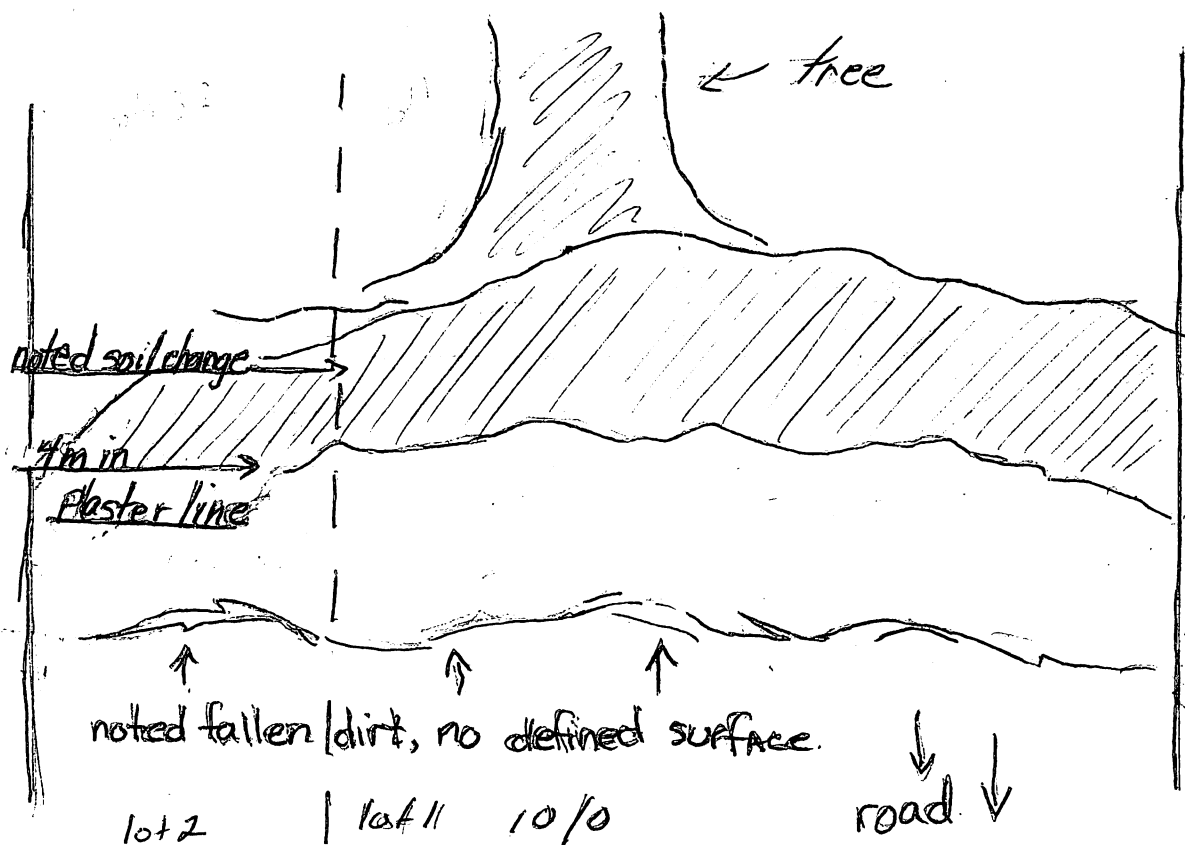 tree
noted soil change
4m in
Plaster line
noted fallen dirt, no defined surface.
road
lot 2 lot 11 10/0